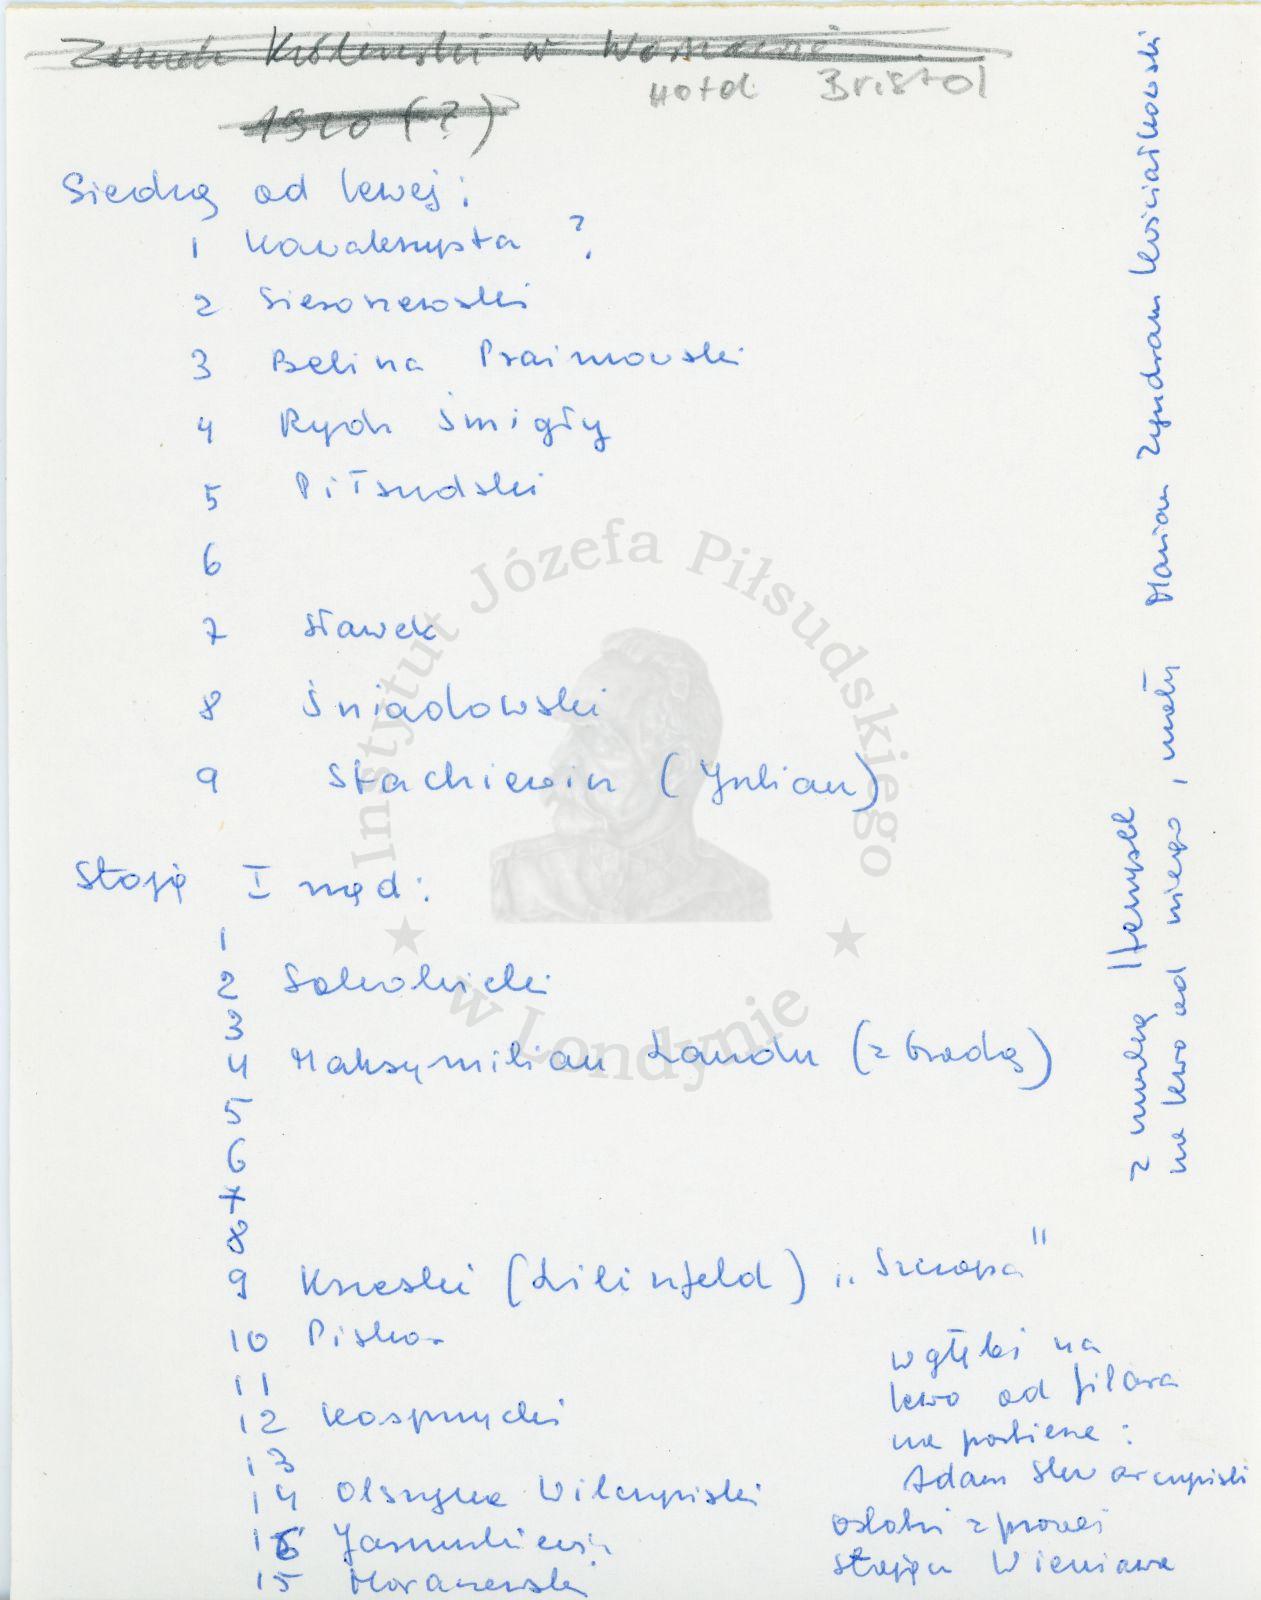 Zamek Królewski w Warszawie
Hotel Bristol
1920 (?)
Siedzą od lewej:
1 Kowalszysta ?
2 Sieroszewski
3 Belina Prażmowski
4 Rydz Śmigły
5 Piłsudski
6
7 Sławek
8 Śniadowski
9 Stachiewicz (Julian)
Stoją I rząd:
1
2 Sokolnicki
3
4 Maksymilian Landau (z brodą)
5
6
7
8
9 Krzeski (Lilienfeld) „Szczapa"
10 Piskor
11
12 Kasprzycki
13
14 Olszyna Wilczyński
15 Januszkiewicz
15 Moraczewski
w głębi na
lewo od filara
na parterze:
Adam Skwarczyński
ostatni z prawej
stojący Wieniawa
z muszką Stempel
na lewo od niego, mały Marian Zyndram Kościałkowski
Instytut Józefa Piłsudskiego
w Londynie